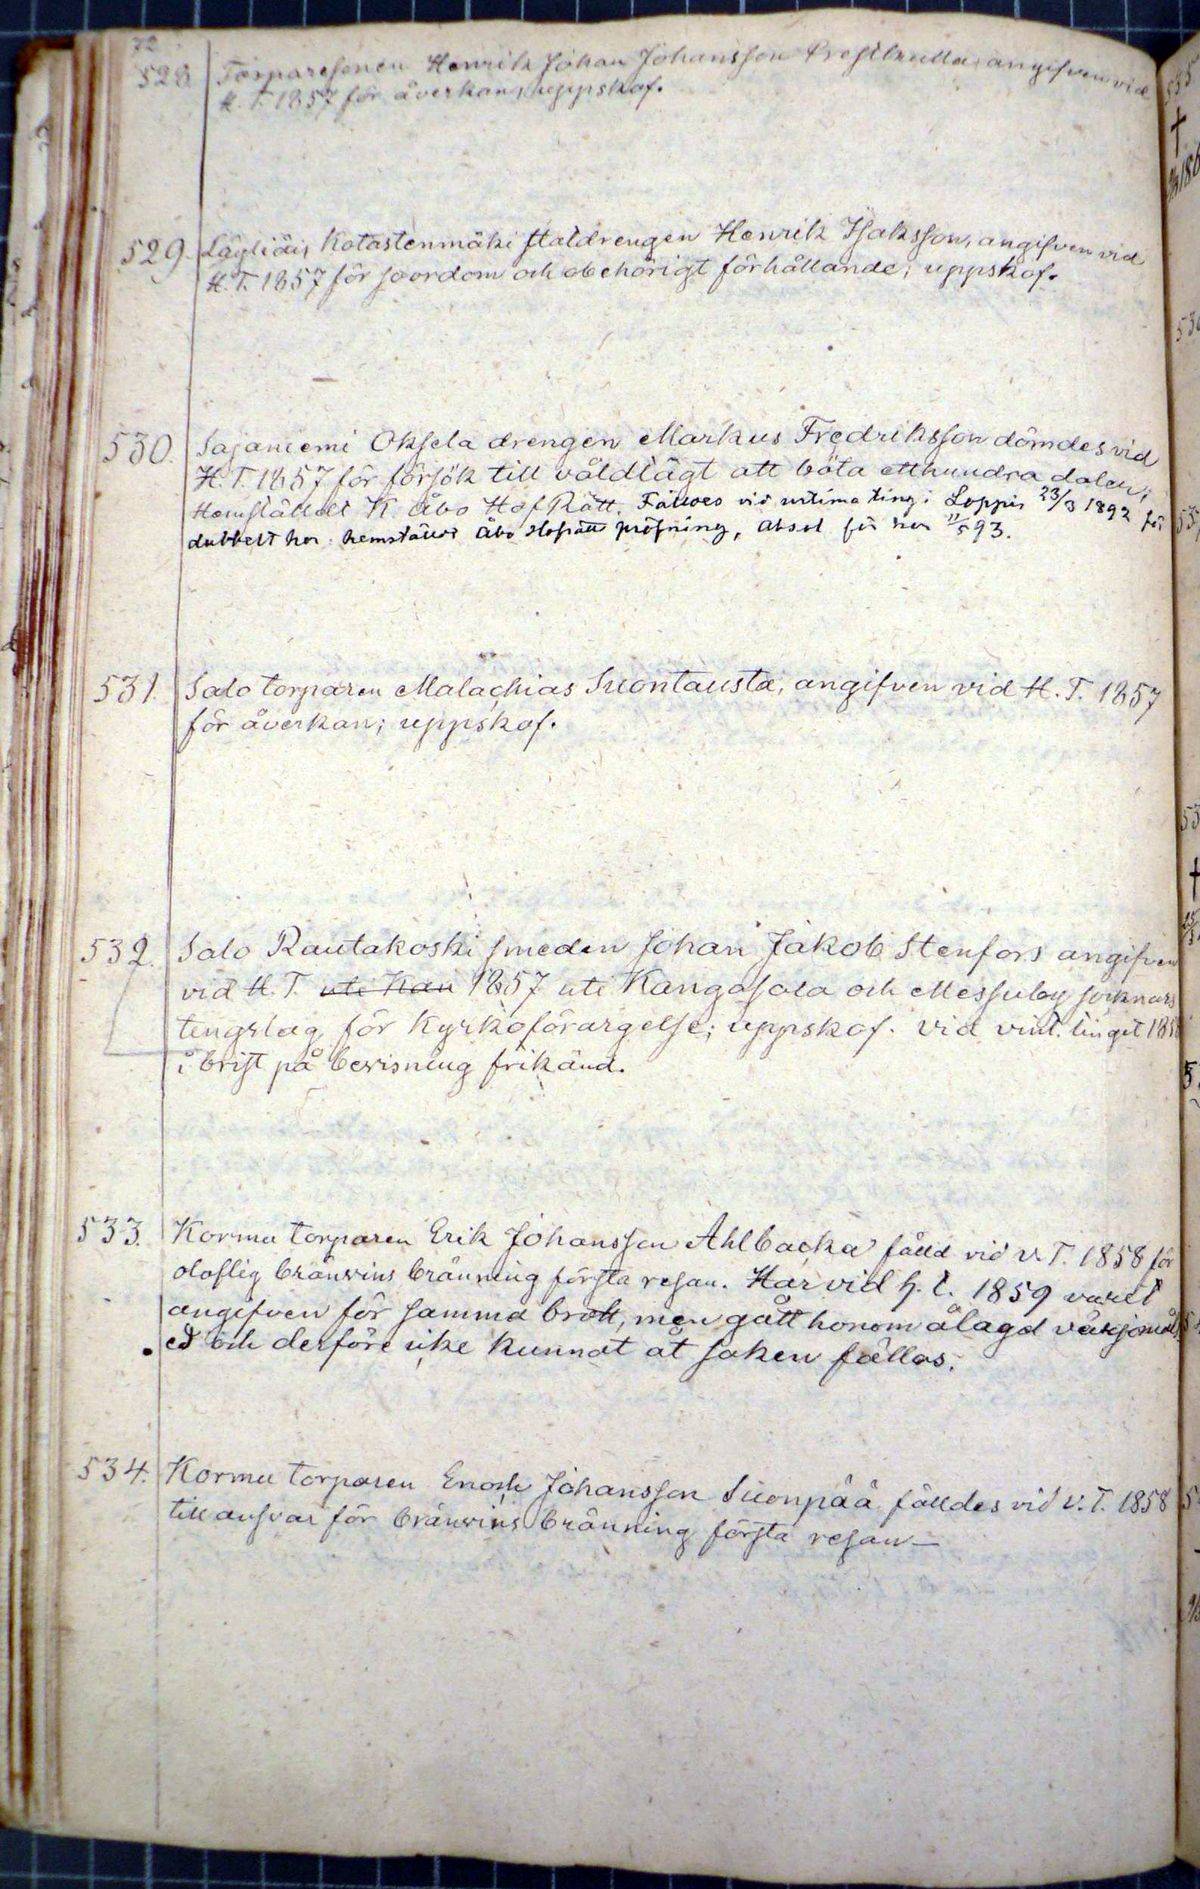 72
528. Torparesonen Henrik Johan Johansson Prestkulla, angifven vid
H. T. 1857 för åverkan; uppskof.
529. Läyliäis Kotastenmäki Statdrengen Henrik Isaksson, angifven vid
H. T. 1857 för soordom och obehörigt förhållande; uppskof.
530. Sajaniemi Oksela drengen Markus Fredriksson dömdes vid
H. T. 1857 för försök till våldtägt att böta etthundra daler;
Hemstäldt K. Åbo Hof Rätt. Fälldes vid urtima ting i Loppis 23/3 1892 för
dubbelt hor: hemstäldt Åbo Hofrätts pröfning, absol för hor 11/5 93.
531. Salo torparen Malachias Suontausta, angifven vid H. T. 1857
för åverkan; uppskof.
532. Salo Rautakoski smeden Johan Jakob Stenfors angifven
vid H. T. uti Kan 1857 uti Kangasala och Messuby socknars
tingslag för kyrkoförargelse; uppskof. vid vint. tinget 1858
i brist på bevisning frikänd.
533. Kormu torparen Erik Johansson Ahlbacka fälld vid V. T. 1858 för
oloflig bränvins bränning första resan. Har vid h. t. 1859 varit
angifven för samma brott, men gått honom ålagd värjomåls
ed och derföre icke kunnat åt saken fällas.
534. Kormu torparen Enoch Johansson Suonpää fälldes vid V. T. 1858
till ansvar för bränvins bränning första resan—